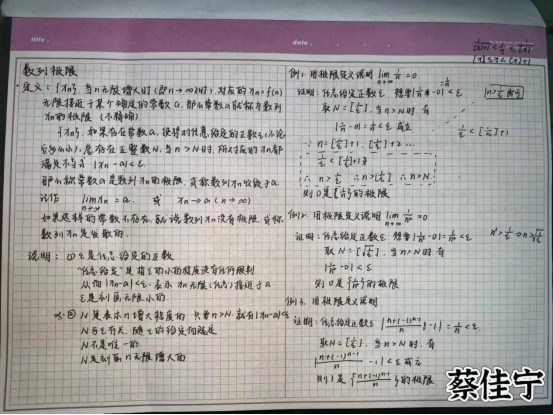 title.
date.
数列极限
定义:{xn},当n无限增大时(即n→∞时),对应的xn=f(n)
无限接近于某个确定的常数a,那么常数a就称为数列
xn的极限 (不精确)
{xn},如果存在常数a,使得对任意给定的正数ε(不论
它多么小),总存在正整数N,当n>N时,所对应的xn都
满足不等式 |xn-a|<ε.
那么称常数a是数列xn的极限,或称数列xn收敛于a.
记作 lim xn = a, 或 xn→a (n→∞)
n→∞
如果这样的常数不存在,就说数列xn没有极限,或称
数列xn是发散的.
说明: ①ε是任意给定的正数
"任意给定"是指ε的小的程度没有任何限制
从而|xn-a|<ε.表示xn无限(任意)接近于a.
ε是刻画无限小的.
②N是表示n增大程度的 只要n>N,就有|xn-a|<ε
N与ε有关,随ε的给定而确定
N不是唯一的
N是刻画n无限增大的
例1:用极限定义说明 lim 1/n = 0
n→∞
证明:任意给定正数ε 想要|1/n-0|<ε
取N=[1/ε],当n>N时,有
|1/n-0|=1/n<ε 成立
∵ n=[1/ε]+1,[1/ε]+2...
1/ε<[1/ε]+1
∴n>1/ε ∴n>[1/ε] ∴n>N.
则0是{1/n}的极限
例2:用极限定义说明
n→∞
证明:任意给定正数ε 想要
当n>N时 有
例3.用极限定义说明
证明:任意给定正数ε |n+(-1)^(n-1)/n-1|=1/n<ε.
取N=[1/ε].当n>N时.有
|n+(-1)^(n-1)/n-1|<ε成立
则1是{n+(-1)^(n-1)/n}的极限
1/ε<[1/ε]+1
蔡佳宁